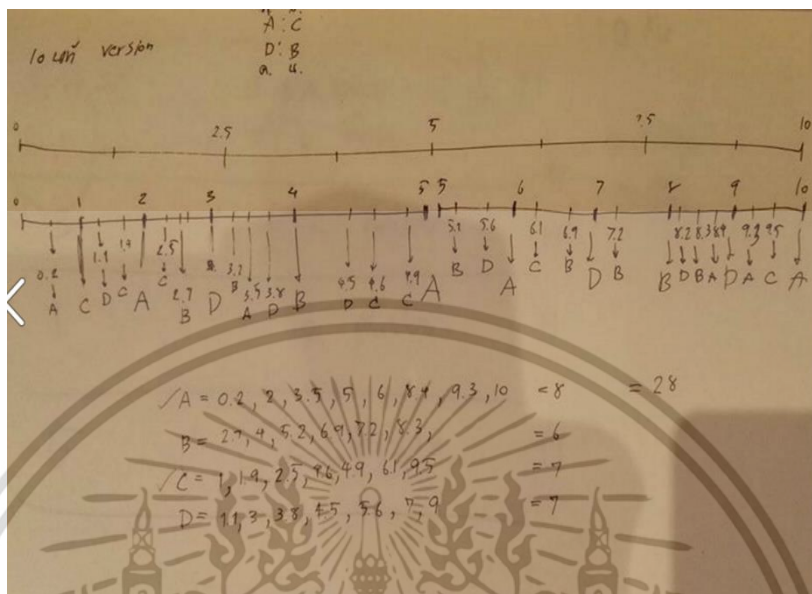 A: C
10 แท้ version
D: B
0 2.5 5 7.5 10
0 1 2 3 4 5 5 6 7 8 9 10
0.2 1.1 1.9 2.5 2.7 3.2 3.5 3.8 4.5 4.6 4.9 5.2 5.6 6.1 6.9 7.2 8.2 8.3 8.9 9.3 9.5
A C D C A C B D B A D B D C C A B D A C B D B B D B A D A C A
/A = 0.2, 2, 3.5, 5, 6, 8.9, 9.3, 10 = 8 = 28
B = 2.7, 4, 5.2, 6.9, 7.2, 8.3, = 6
/C = 1, 1.9, 2.5, 4.6, 4.9, 6.1, 9.5 = 7
D = 1.1, 3, 3.8, 4.5, 5.6, 7, 9 = 7